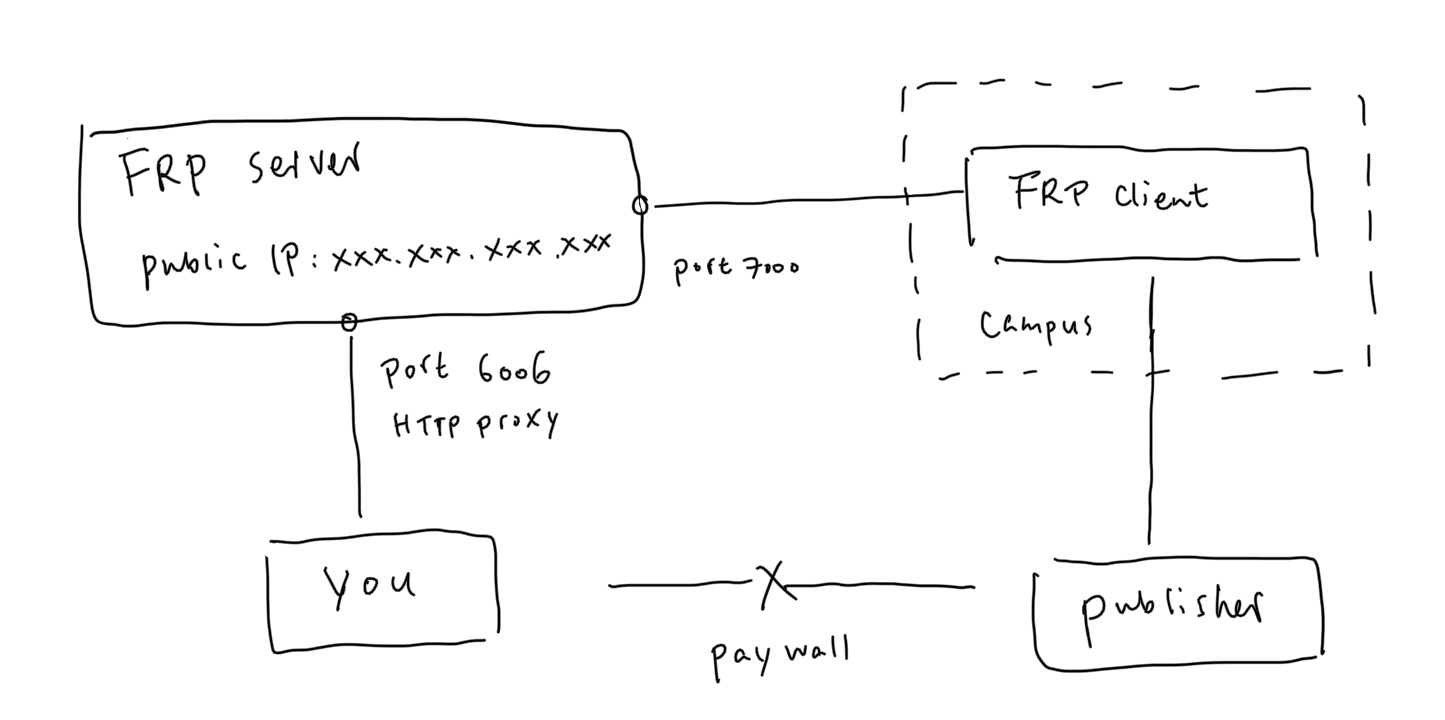 FRP server
public IP: xxx.xxx.xxx.xxx
port 7000
FRP client
Campus
port 6006
HTTP proxy
you
pay wall
publisher